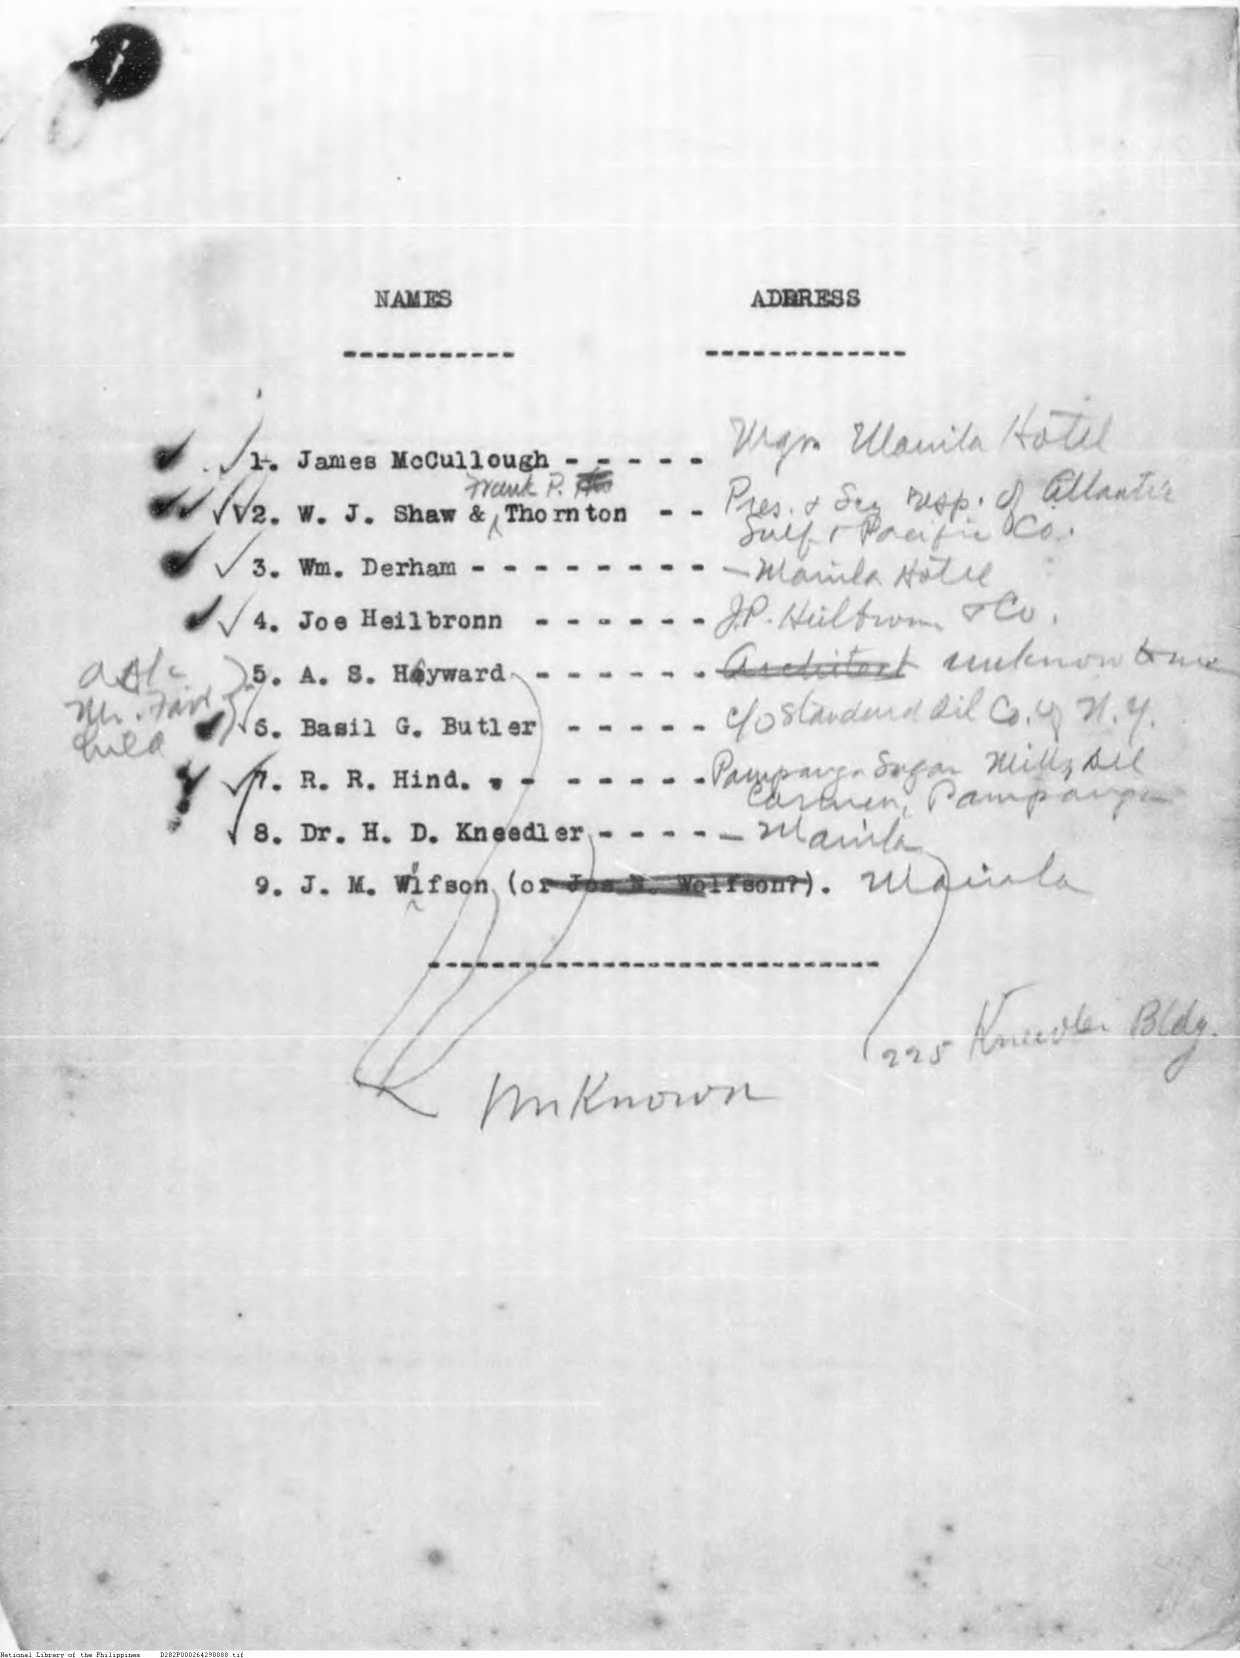 NAMES ADDRESS
----------- -------------
1. James McCullough - - - - - Mgr Manila Hotel
Frank P.
2. W. J. Shaw & Thornton - - Pres. & Sec resp. of Atlantic
Gulf & Pacific Co.
3. Wm. Derham - - - - - - - - - Manila Hotel
4. Joe Heilbronn - - - - - - J.P. Heilbronn & Co.
5. A. S. Hayward - - - - - - Architect unknown to me
Ask
Mr. Fair
child
6. Basil G. Butler - - - - - c/o Standard Oil Co. of N.Y.
7. R. R. Hind. - - - - - - - Pampanga Sugar Mills, Del
Carmen, Pampanga
8. Dr. H. D. Kneedler - - - - - Manila
9. J. M. Wifson (or Jos N. Wolfson?). Manila
-----------------------------
225 Kneedler Bldg.
Unknown
National Library of the Philippines D282P000264290088.tif